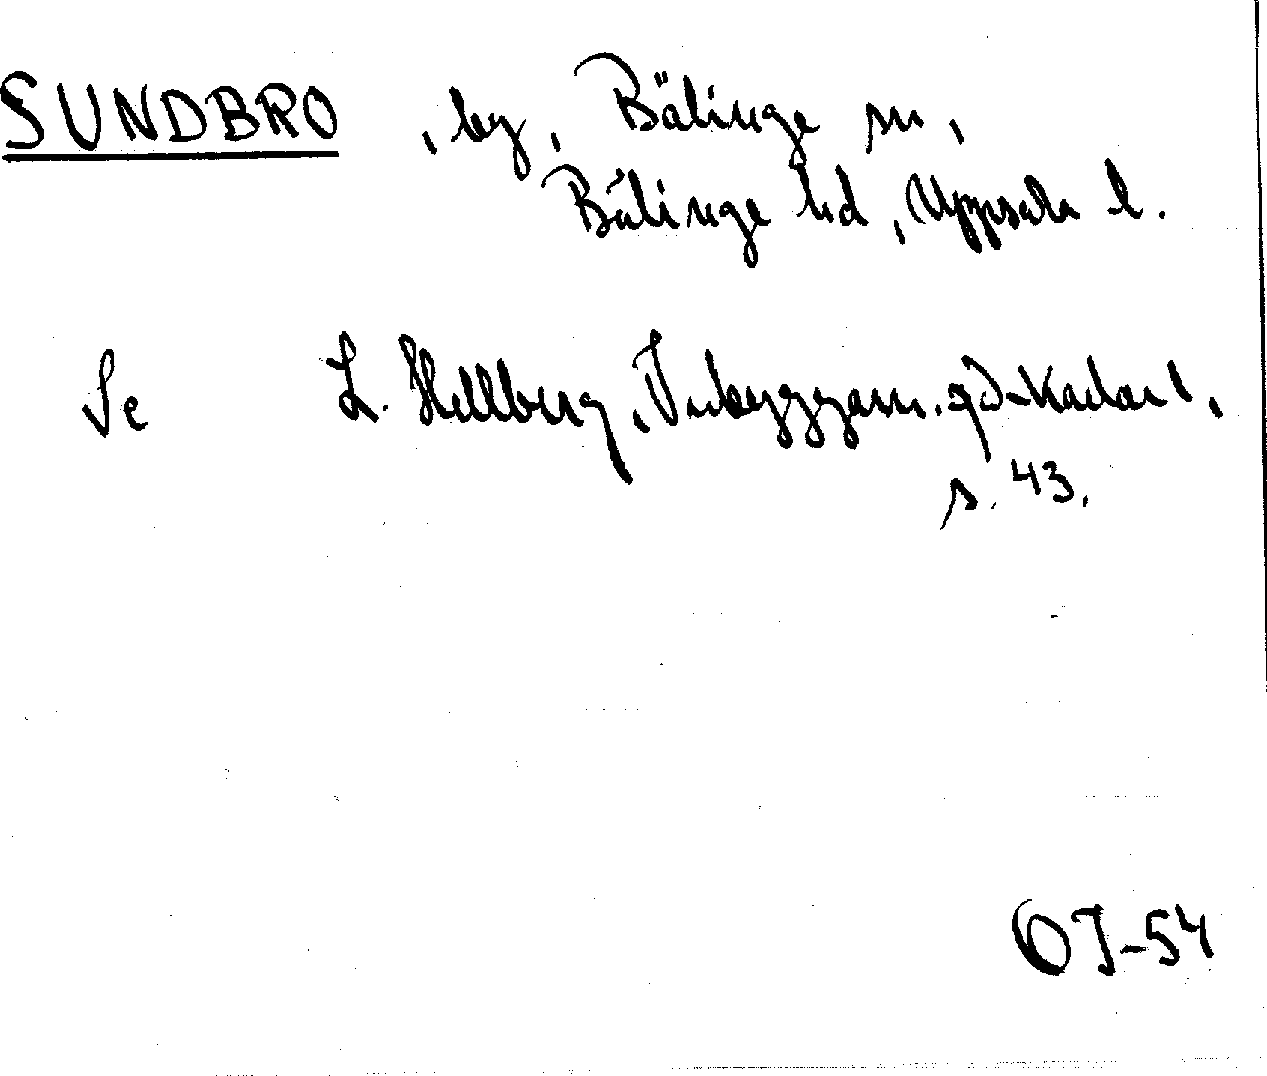 SUNDBRO, by, Bälinge sn,
Bälinge hd, Uppsala l.
Se L. Hellberg, Inbyggarn. på -karlar 1,
s. 43.
OJ-54